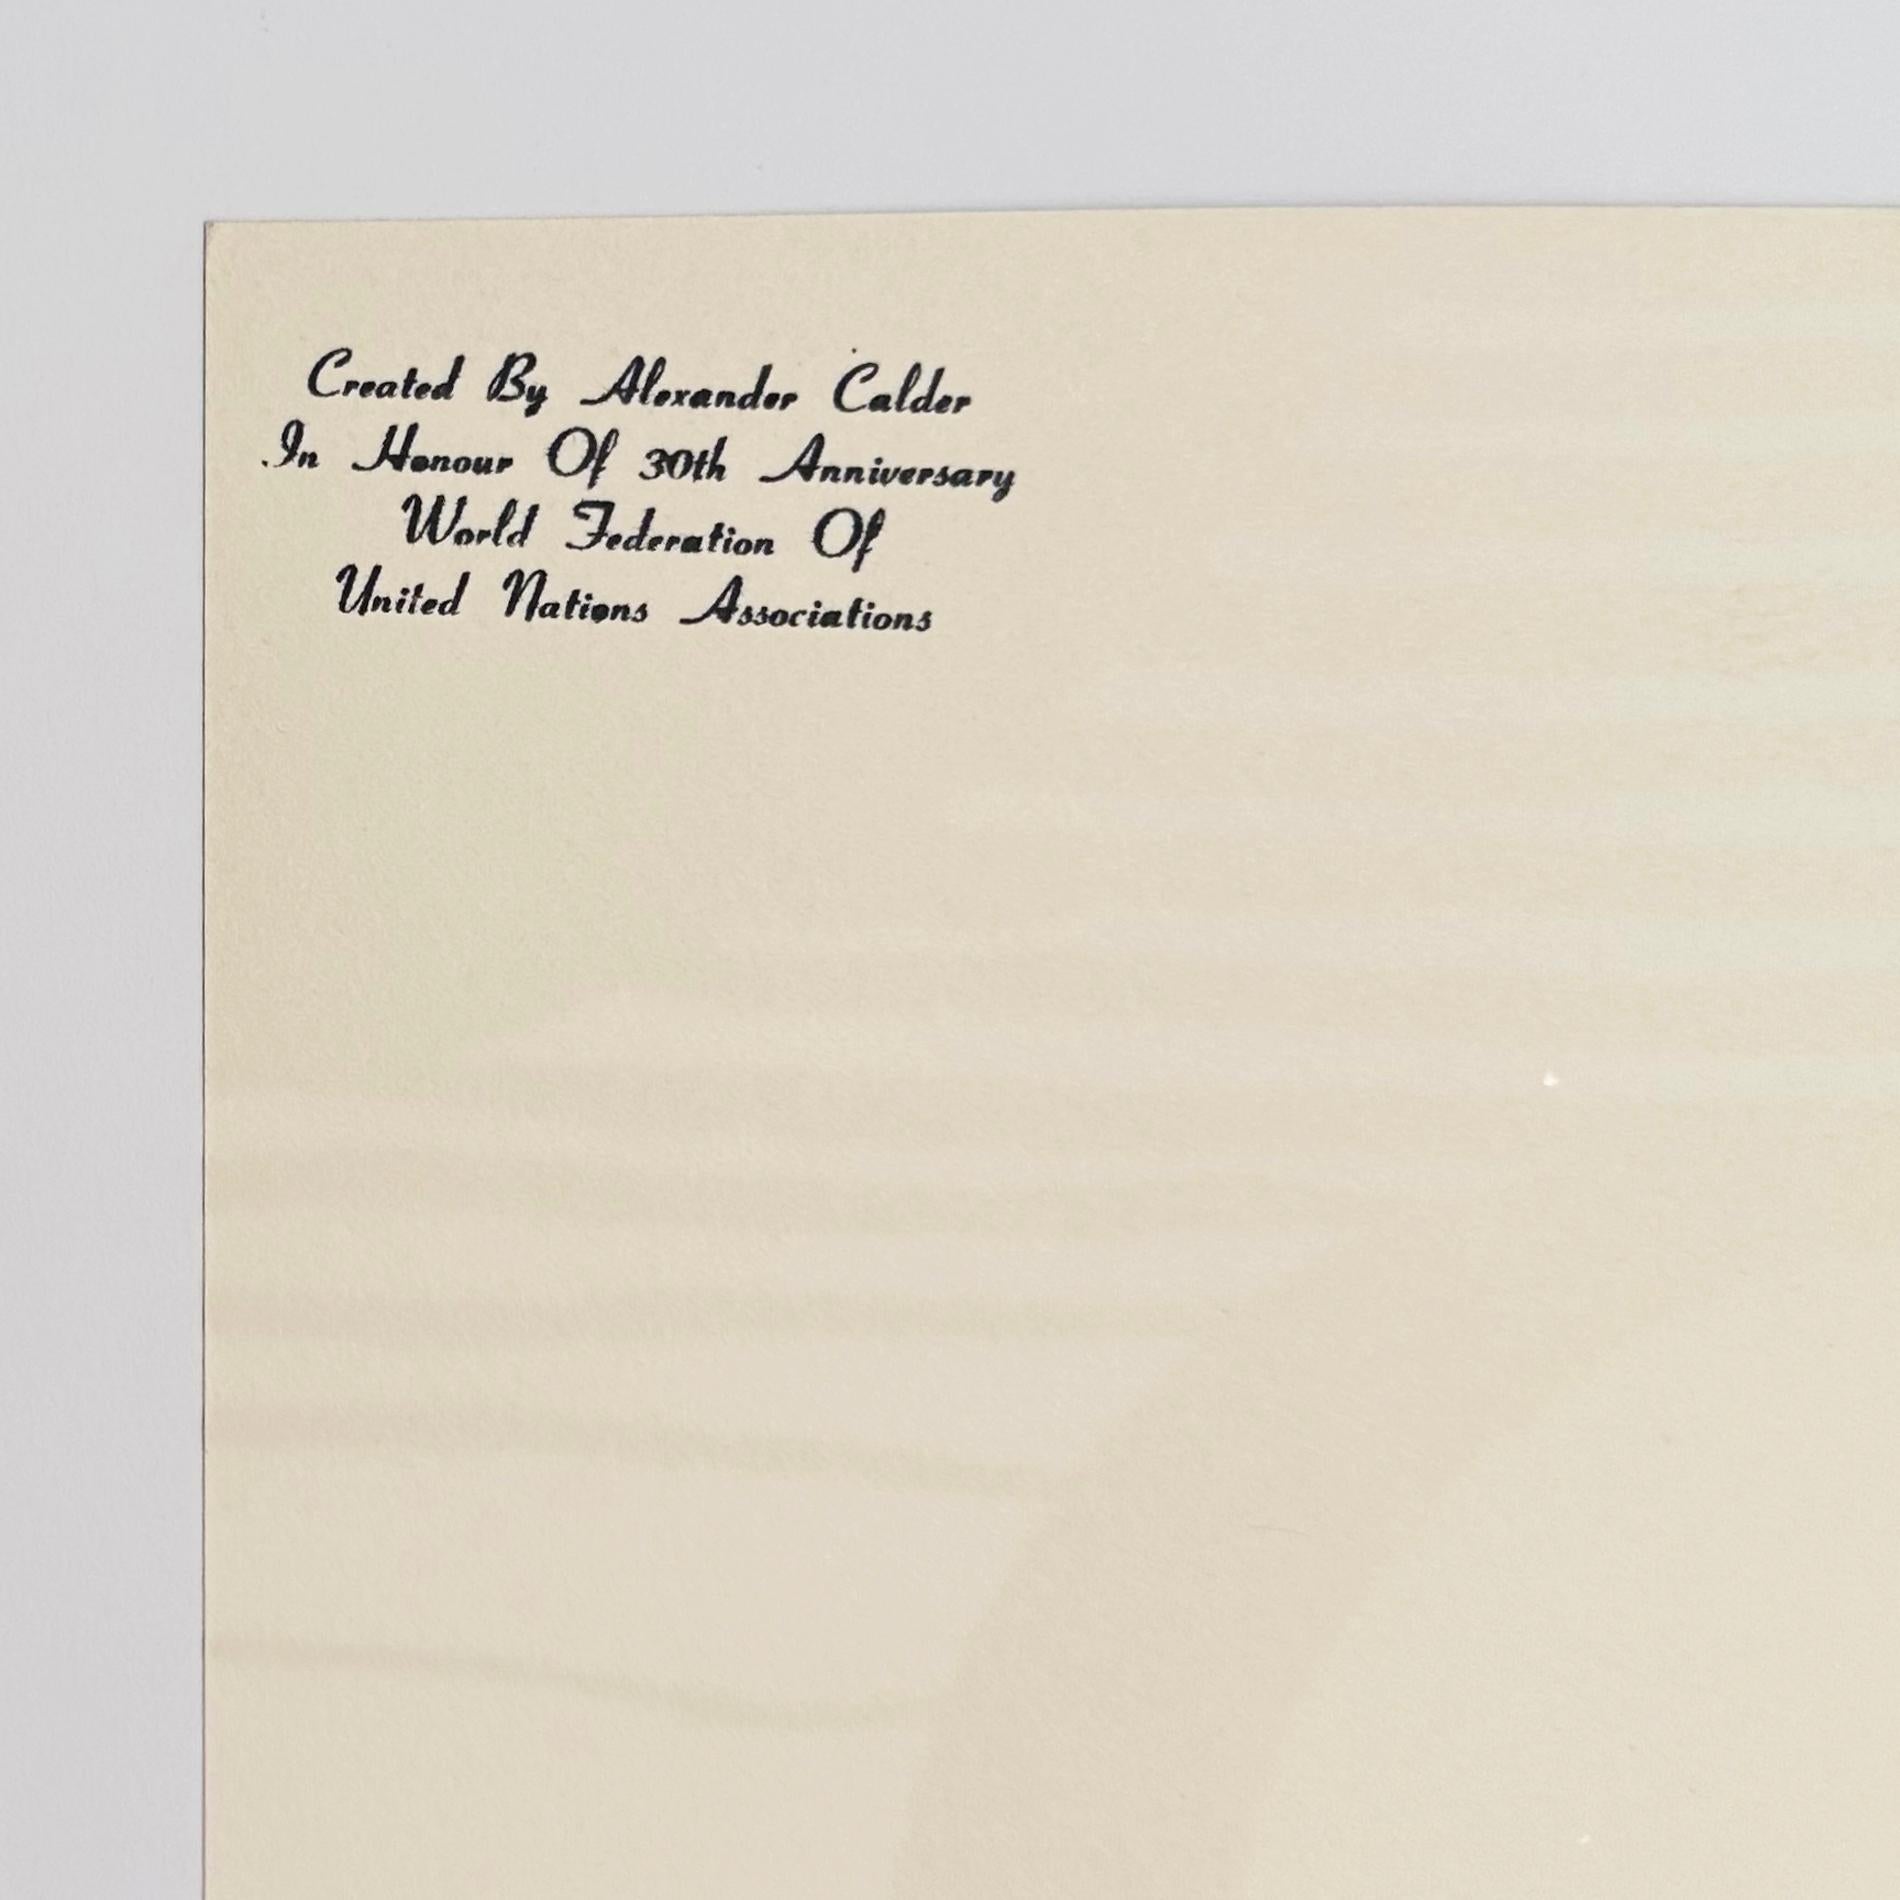 Created By Alexander Calder
In Honour Of 30th Anniversary
World Federation Of
United Nations Associations